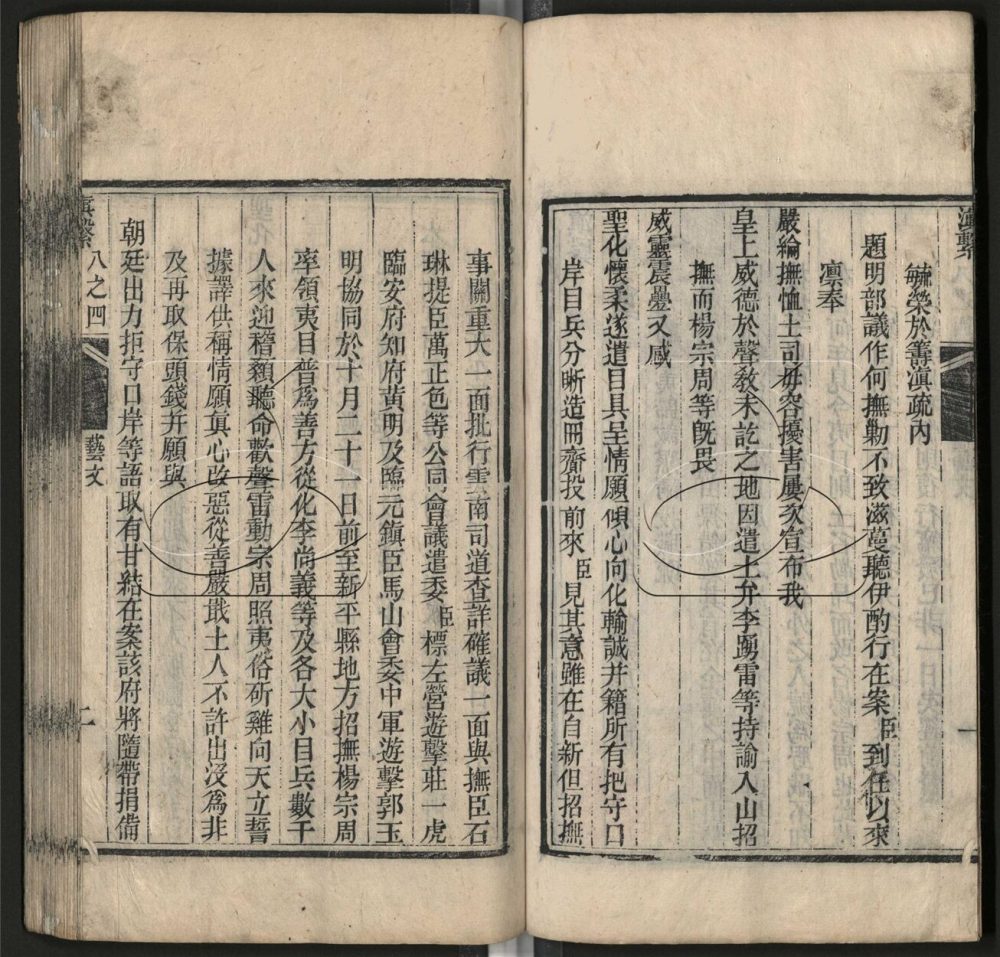 滇繫
一
毓榮於籌滇疏內
題明部議作何撫勦不致滋蔓聽伊酌行在案臣到任以來
凛奉
嚴綸撫恤土司毋容擾害屢次宣布我
皇上威德於聲教未訖之地因遣土弁李躍雷等持諭入山招
撫而楊宗周等旣畏
威靈震疊又感
聖化懷柔遂遣目具呈情願傾心向化輸誠并籍所有把守口
岸目兵分晰造冊齎投前來臣見其意雖在自新但招撫
事關重大一面批行雲南司道查詳確議一面與撫臣石
琳提臣萬正色等公同會議遣委臣標左營遊擊莊一虎
臨安府知府黃明及臨元鎮臣馬山會委中軍遊擊郭玉
明協同於十月二十一日前至新平縣地方招撫楊宗周
率領夷目普爲善方從化李尚義等及各大小目兵數千
人來迎稽顙聽命歡聲雷動宗周照夷俗斫雞向天立誓
據譯供稱情願眞心改惡從善嚴戢土人不許出沒爲非
及再取保頭錢并願與
朝廷出力拒守口岸等語取有甘結在案該府將隨帶捐備
滇繫
八之四
藝文
二